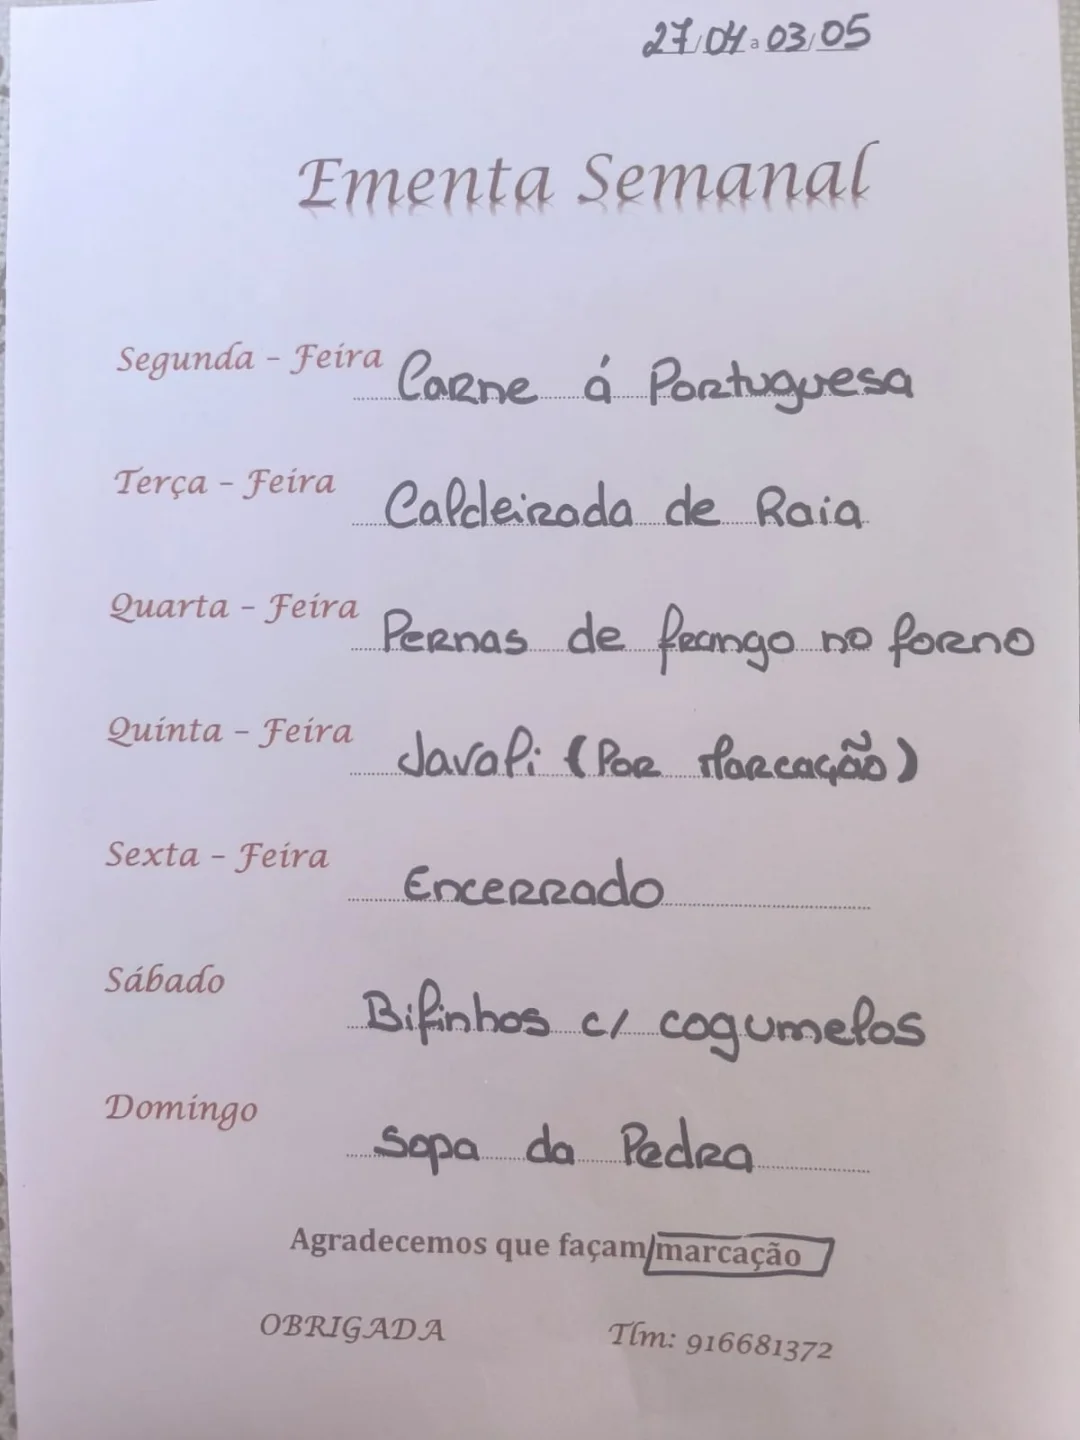 27/04 a 03/05
Ementa Semanal
Segunda - Feira Carne á Portuguesa
Terça - Feira Caldeirada de Raia
Quarta - Feira Pernas de frango no forno
Quinta - Feira Javali (Por Marcação)
Sexta - Feira Encerrado
Sábado Bifinhos c/ cogumelos
Domingo Sopa da Pedra
Agradecemos que façam marcação
OBRIGADA Tlm: 916681372